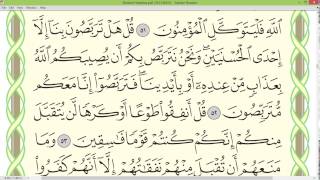 اللَّهِ فَلْيَتَوَكَّلِ الْمُؤْمِنُونَ ٥١ قُلْ هَلْ تَرَبَّصُونَ بِنَا إِلَّا
إِحْدَى الْحُسْنَيَيْنِ وَنَحْنُ نَتَرَبَّصُ بِكُمْ أَن يُصِيبَكُمُ اللَّهُ
بِعَذَابٍ مِّنْ عِندِهِ أَوْ بِأَيْدِينَا فَتَرَبَّصُوا إِنَّا مَعَكُم
مُّتَرَبِّصُونَ ٥٢ قُلْ أَنفِقُوا طَوْعًا أَوْ كَرْهًا لَّن يُتَقَبَّلَ
مِنكُمْ إِنَّكُمْ كُنتُمْ قَوْمًا فَاسِقِينَ ٥٣ وَمَا
مَنَعَهُمْ أَن تُقْبَلَ مِنْهُمْ نَفَقَاتُهُمْ إِلَّا أَنَّهُمْ كَفَرُوا